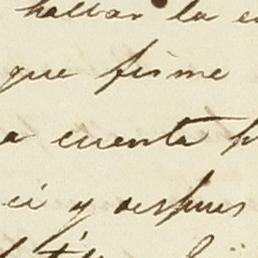 hallar la e
que firme
a cuenta p
ci y despues